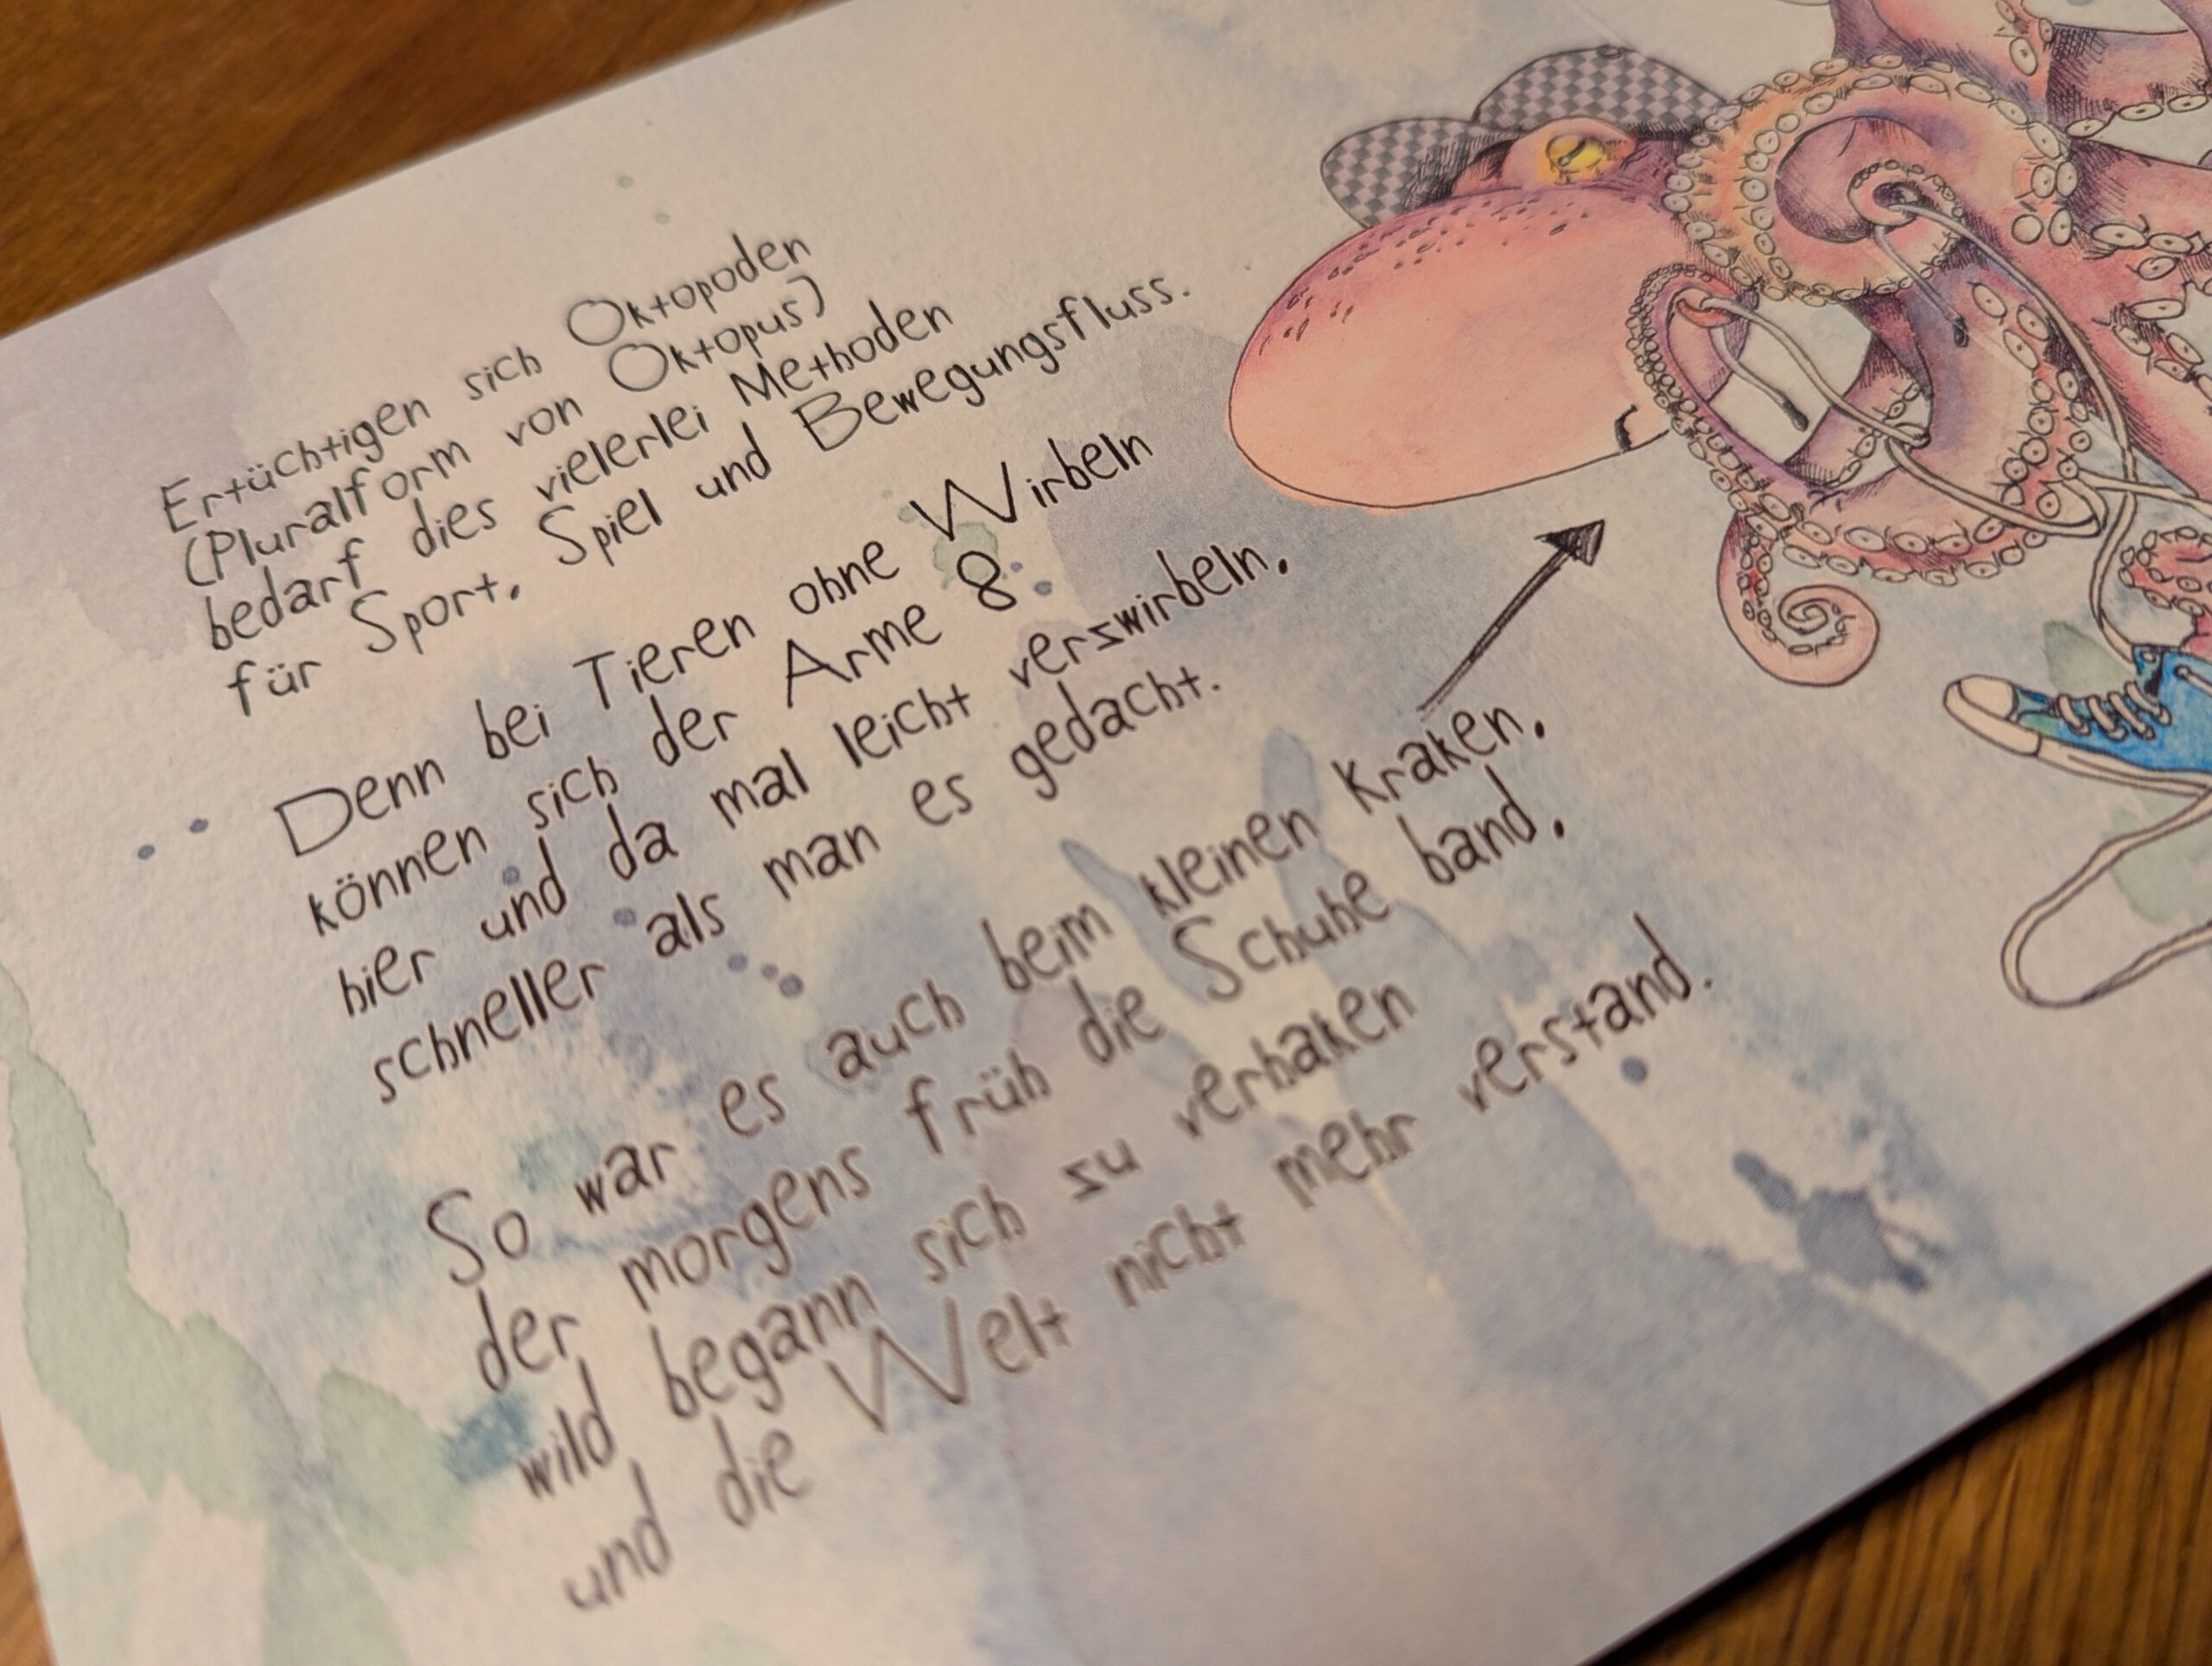 Ertüchtigen sich Oktopoden
(Pluralform von Oktopus)
bedarf dies vielerlei Methoden
für Sport, Spiel und Bewegungsfluss.
Denn bei Tieren ohne Wirbeln
können sich der Arme 8
hier und da mal leicht verzwirbeln,
schneller als man es gedacht.
So war es auch beim kleinen Kraken,
der morgens früh die Schuhe band,
wild begann sich zu verhaken
und die Welt nicht mehr verstand.